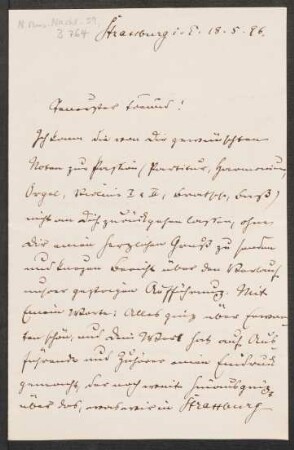 N. Mus. Nachl. 29,
B 764
Strassburg i. E. 18-5-96.
Teuerster Freund!
Ich kann die von Dir gewünschten
Noten zur Passion (Partitur, Harmonium,
Orgel, Violine I u. II, Bratsche, Baß)
nicht an Dich zurückgehen lassen, ohne
Dir einen herzlichen Gruß zu senden
und kurzen Bericht über den Verlauf
unsrer gestrigen Aufführung. Mit
Einem Worte: Alles ging über Erwar-
ten schön, und Dein Werk hat auf Aus-
führende und Zuhörer einen Eindruck
gemacht, der noch weit hinausging
über das, was wir in Strassburg